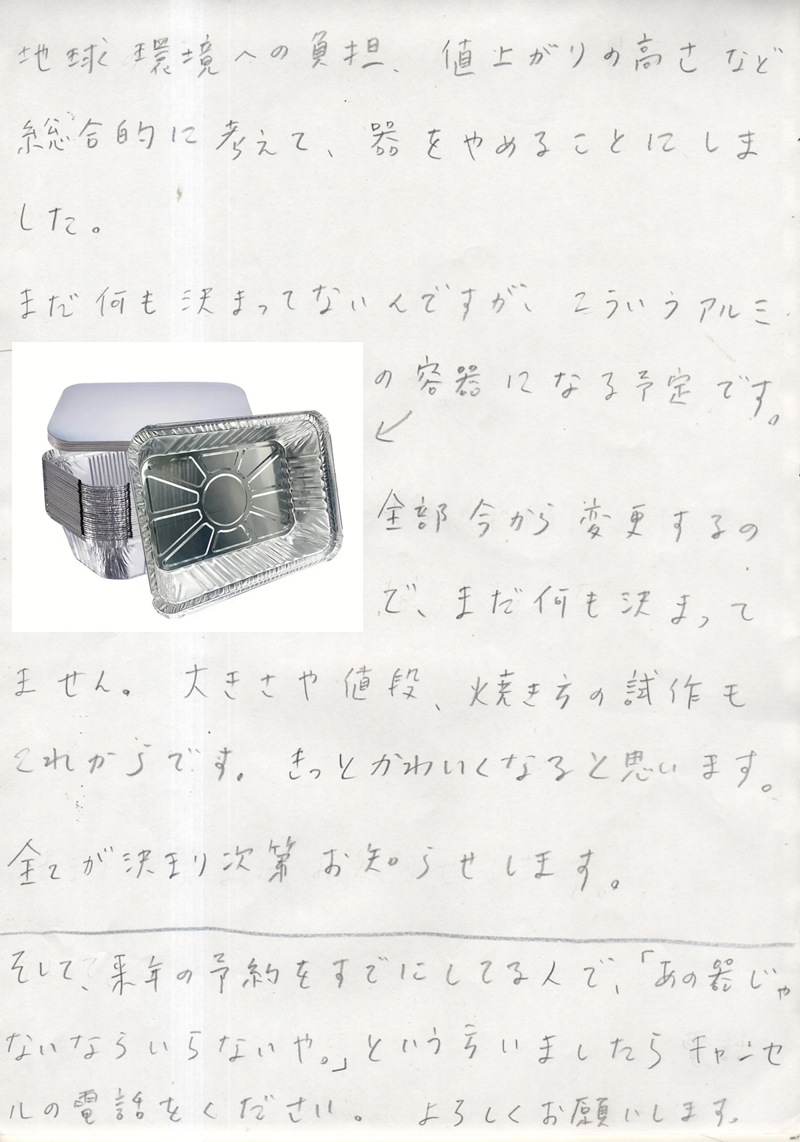 地球環境への負担、値上がりの高さなど
総合的に考えて、器をやめることにしま
した。
まだ何も決まってないんですが、こういうアルミ
の容器になる予定です。
全部今から変更するの
で、まだ何も決まって
ません。大きさや値段、焼き方の試作も
これからです。きっとかわいくなると思います。
全てが決まり次第お知らせします。
そして、来年の予約をすでにしてる人で、「あの器じゃ
ないならいらないや。」という方いましたらキャンセ
ルの電話をください。よろしくお願いします。